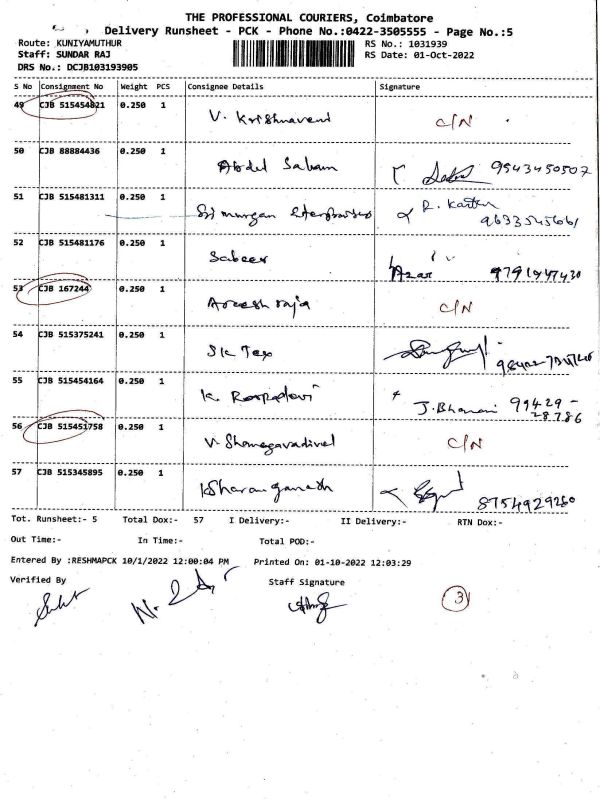 THE PROFESSIONAL COURIERS, Coimbatore
Delivery Runsheet - PCK - Phone No.:0422-3505555 - Page No.:5
Route: KUNIYAMUTHUR RS No.: 1031939
Staff: SUNDAR RAJ RS Date: 01-Oct-2022
DRS No.: DCJB103193905
S No Consignment No Weight PCS Consignee Details Signature
49 CJB 515454821 0.250 1 V. Krishnaveni C/N
50 CJB 88884436 0.250 1 Abdul Salam 9543450507
51 CJB 515481311 0.250 1 Sri murgan R. Karthi
52 CJB 515481176 0.250 1 Sabeer Azar 9791947430
53 CJB 167244 0.250 1 raja C/N
54 CJB 515375241 0.250 1 SK Tex
55 CJB 515454164 0.250 1 K. J. Bharani 99429-
28786
56 CJB 515451758 0.250 1 V. C/N
57 CJB 515345895 0.250 1 8754929260
Tot. Runsheet:- 5 Total Dox:- 57 I Delivery:- II Delivery:- RTN Dox:-
Out Time:- In Time:- Total POD:-
Entered By :RESHMAPCK 10/1/2022 12:00:04 PM Printed On: 01-10-2022 12:03:29
Verified By Staff Signature
3